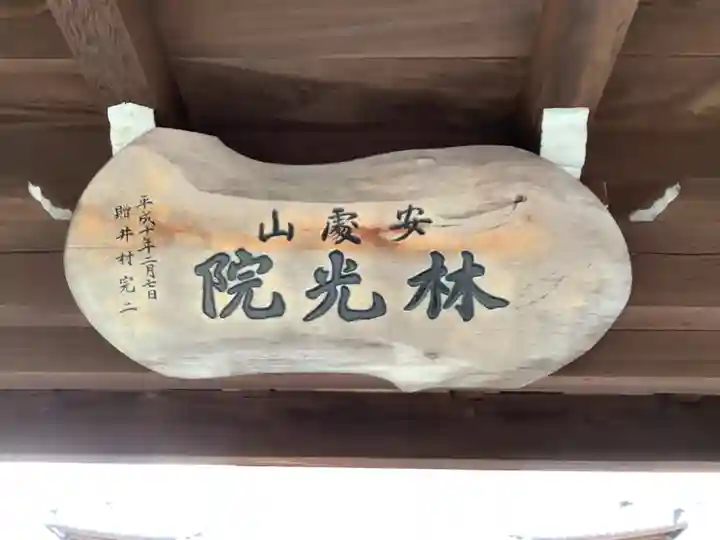 安處山
林光院
平成十年二月七日
贈井村完二